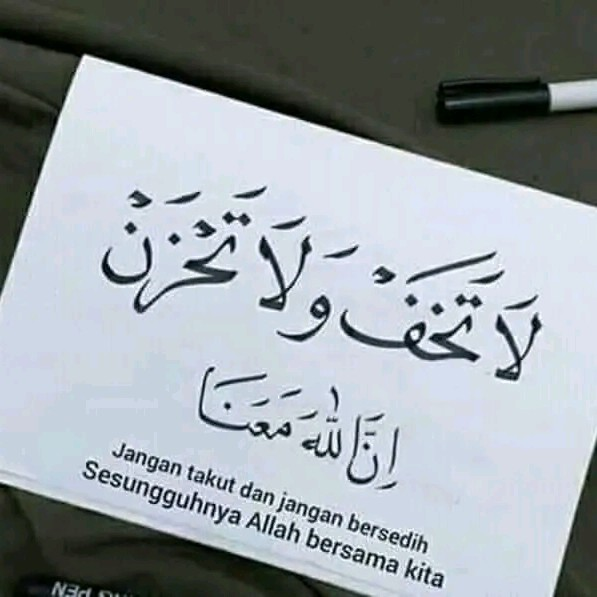 لَا تَخَفْ وَلَا تَحْزَنْ
اِنَّ اللّٰهَ مَعَنَا
Jangan takut dan jangan bersedih
Sesungguhnya Allah bersama kita
PEN